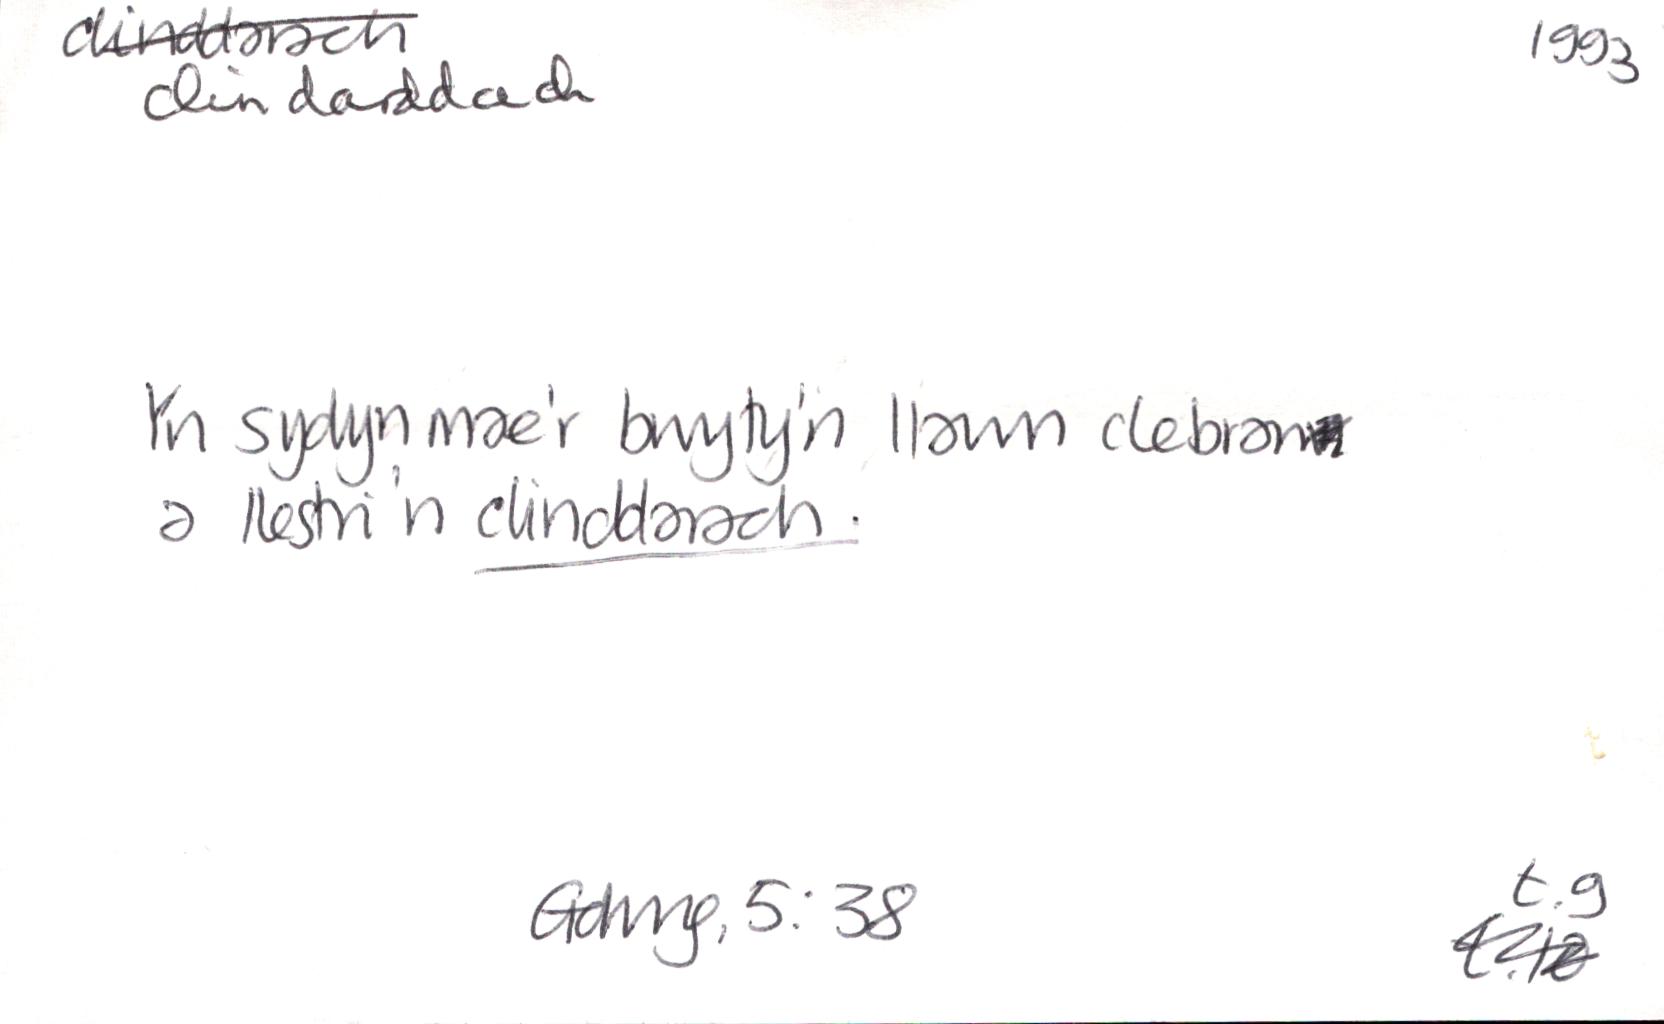 clinddarach
clindarddach
1993
Yn sydyn mae'r bwyty'n llawn clebran
a llestri'n clinddarach.
5:38
t.9